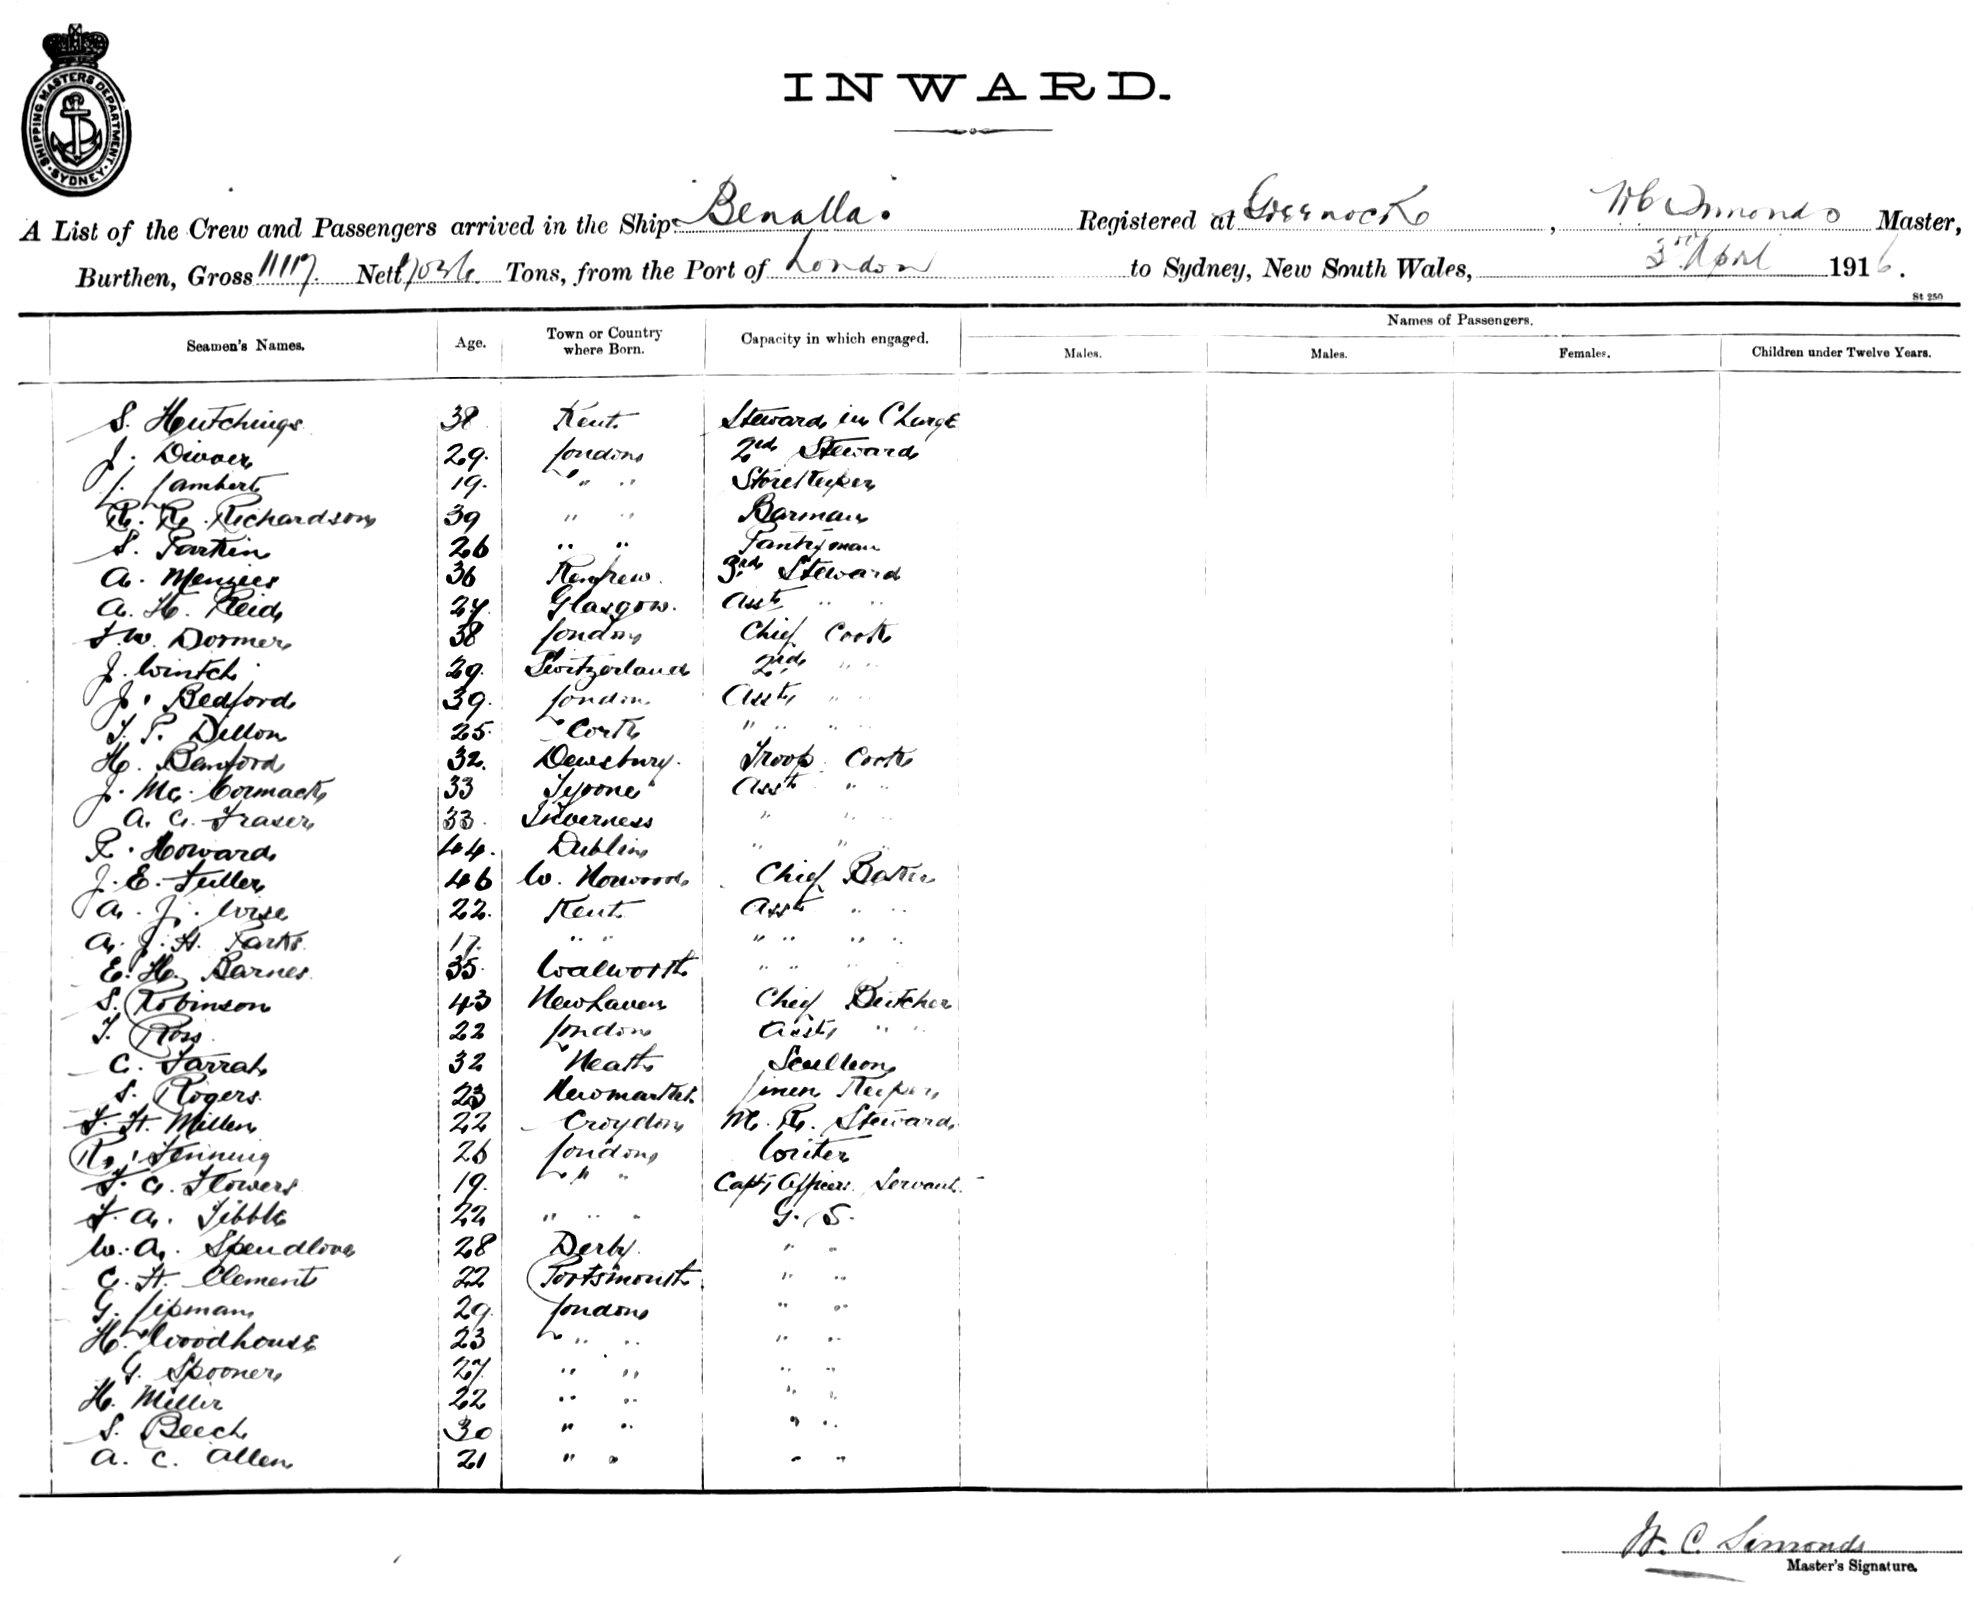 SHIPPING MASTERS DEPARTMENT SYDNEY
INWARD.
A List of the Crew and Passengers arrived in the Ship Benalla Registered at Greenock, W C Simonds Master,
Burthen, Gross 11117. Nett 7036 Tons, from the Port of London to Sydney, New South Wales, 3rd April 1916.
St 250
Seamen's Names. Age. Town or Country where Born. Capacity in which engaged. Names of Passengers.
Males. Males. Females. Children under Twelve Years.
S. Hutchings 38 Kent Steward in Charge
J. Divver 29. London 2nd Steward
J. Lambert 19. " " Storekeeper
R. R. Richardson 39 " " Barman
S. Parkin 26 " " Pantryman
A. Menzies 36 Renfrew. 3rd Steward
A. H. Reid 27. Glasgow. Asst " "
F. W. Dormer 38 London Chief Cook
J. Wintch 29. Switzerland 2nd " "
J. Bedford 39. London Asst " "
T. P. Dillon 25. Cork " " " "
H. Bamford 32. Dewsbury. Troop Cook
J. Mc. Cormack 33 Tyrone Asst " "
A. G. Fraser 33. Inverness " " "
R. Howard 44. Dublin " " "
J. E. Fuller 46 W. Norwood Chief Baker
A. J. Wise 22. Kent Asst " "
A. J. H. Parks 17. " " " " " "
E. H. Barnes 35. Walworth " " " "
S. Robinson 43 Newhaven Chief Butcher
T. Ross 22 London Asst " "
C. Farrah 32 Neath Scullion
S. Rogers. 23 Newmarket. Linen Keeper
F. H. Miller 22 Croydon M. R. Steward.
R. Fenning 26 London Writer
F. G. Flowers 19. " " Capt & Officers Servant.
F. A. Tibble 22 " " " G. S.
W. A. Spendlove 28 Derby. " "
C. H. Clement 22 Portsmouth. " "
G. Lipman 29. London " "
H. Woodhouse 23 " " " "
G. Spooner 27. " " " "
H. Miller 22 " " " "
S. Beech 30 " " " "
A. C. Allen 21 " " " "
W. C. Simonds
Master's Signature.